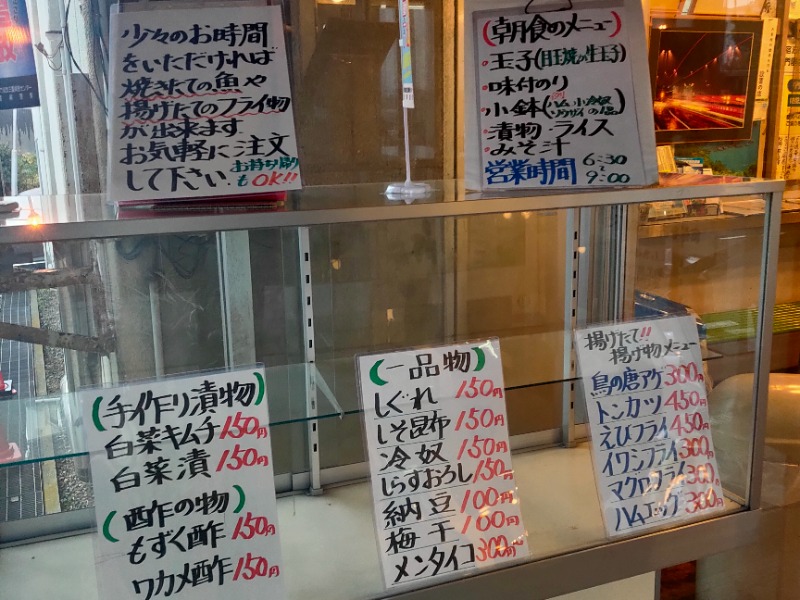 少々のお時間
をいただければ
焼きたての魚や
揚げたてのフライ物
が出来ます
お気軽に注文
して下さい。
お持ち帰り
もOK!!
(朝食のメニュー)
・玉子(目玉焼き or 生玉子)
・味付のり
・小鉢(ハム、小冷奴
・漬物・ライス
・みそ汁
営業時間 6:30
9:00
(手作り漬物)
白菜キムチ150円
白菜漬 150円
(酢の物)
もずく酢 150円
ワカメ酢 150円
(一品物)
しぐれ 150円
しそ昆布 150円
冷奴 150円
しらすおろし150円
納豆 100円
梅干 100円
メンタイコ300円
揚げたて!!
揚げ物メニュー
鳥の唐アゲ 300円
トンカツ 450円
えびフライ 450円
イワシフライ 300円
マグロフライ 300円
ハムエッグ 300円